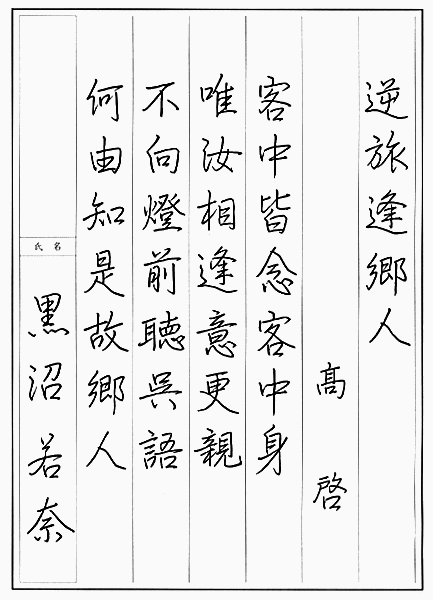 逆旅逢郷人
高啓
客中皆念客中身
唯汝相逢意更親
不向燈前聴呉語
何由知是故郷人
氏名
黒沼若奈